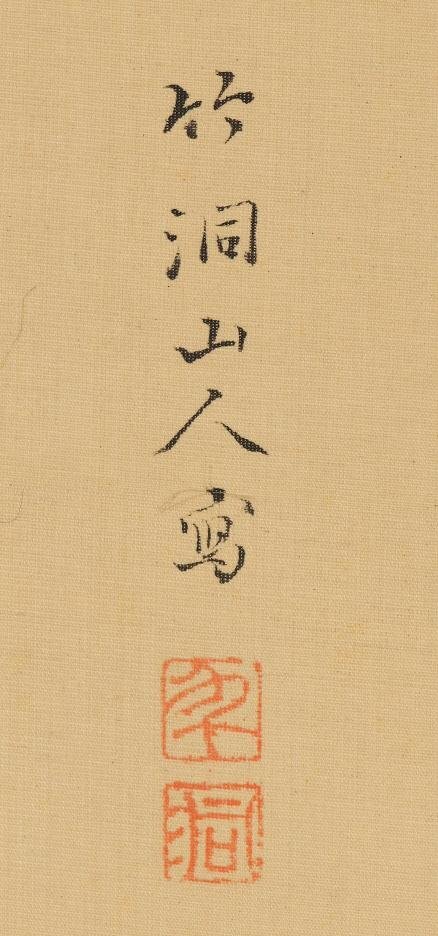 竹洞山人寫